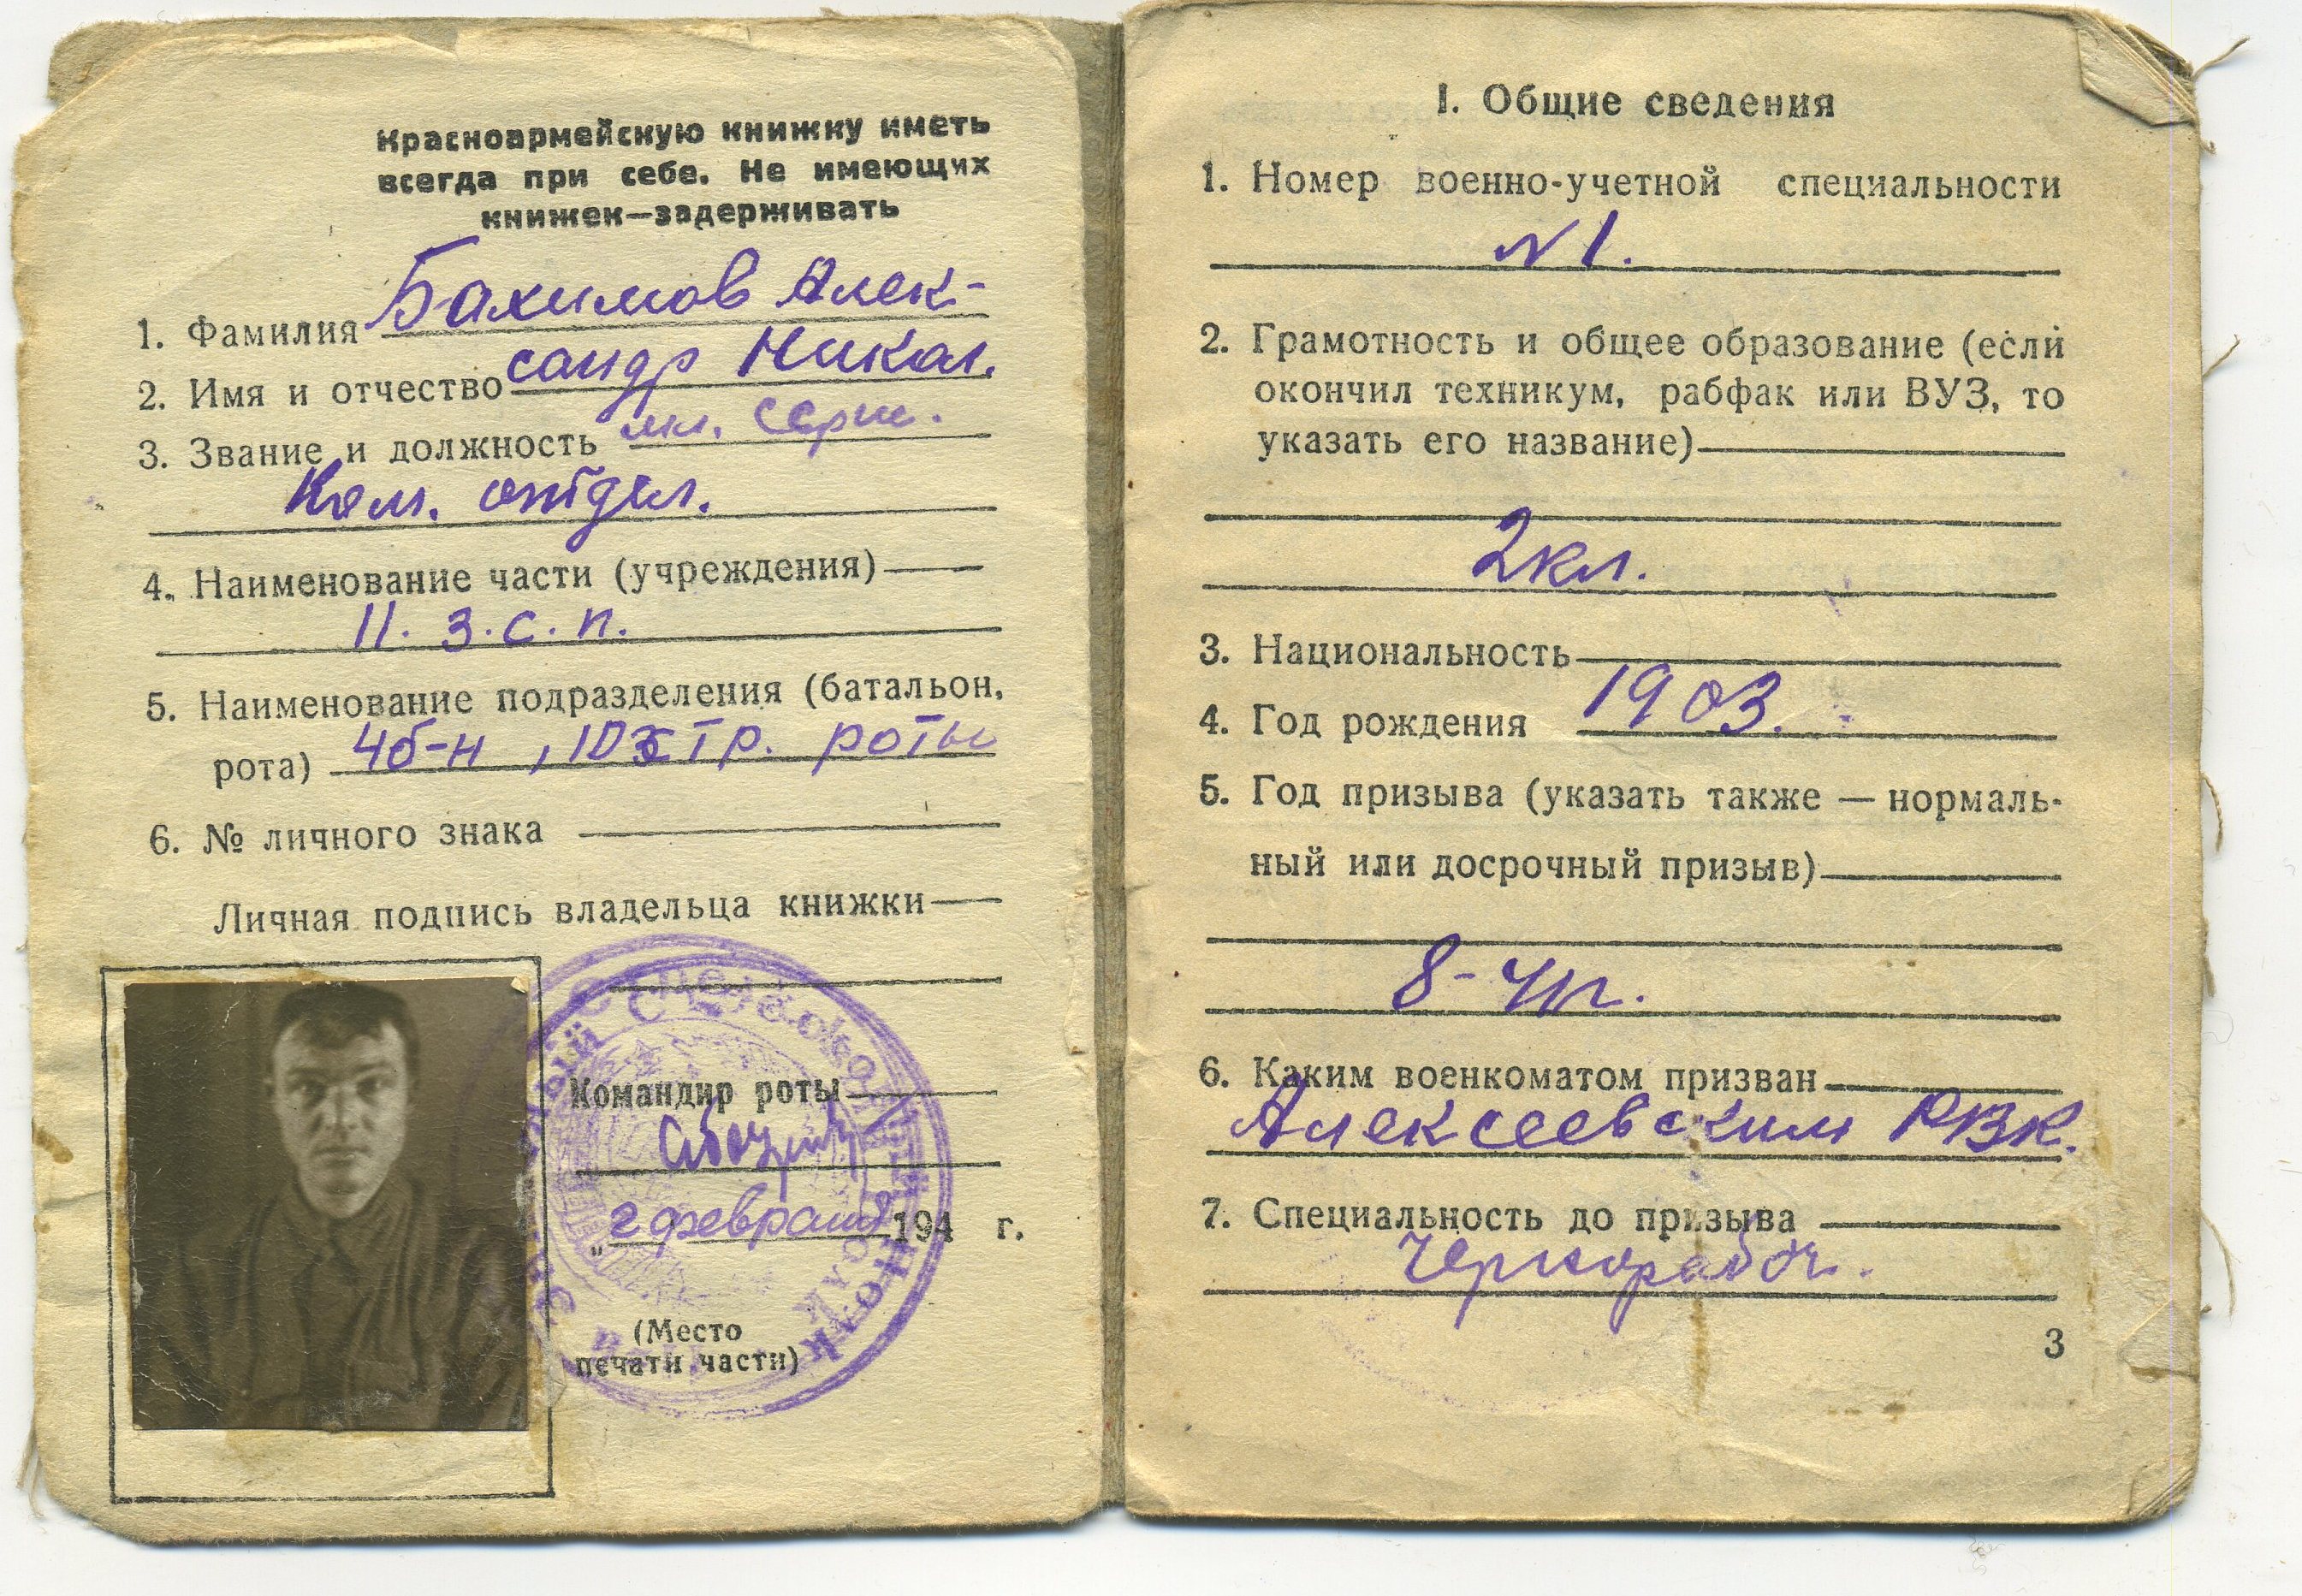 Красноармейскую книжку иметь
всегда при себе. Не имеющих
книжек—задерживать
1. Фамилия Бахимов Алек-
2. Имя и отчество сандр Никол.
3. Звание и должность мл. серж.
Ком. отдел.
4. Наименование части (учреждения)
11. з. с. п.
5. Наименование подразделения (батальон,
рота) 4б-н, 10 стр. роты
6. № личного знака
Личная подпись владельца книжки
Командир роты
„ 2 февраля 194 г.
(Место
печати части)
I. Общие сведения
1. Номер военно-учетной специальности
N 1.
2. Грамотность и общее образование (если
окончил техникум, рабфак или ВУЗ, то
указать его название)
2кл.
3. Национальность
4. Год рождения 1903.
5. Год призыва (указать также — нормаль-
ный или досрочный призыв)
6. Каким военкоматом призван
Алексеевским РВК.
7. Специальность до призыва
Чернорабоч.
3